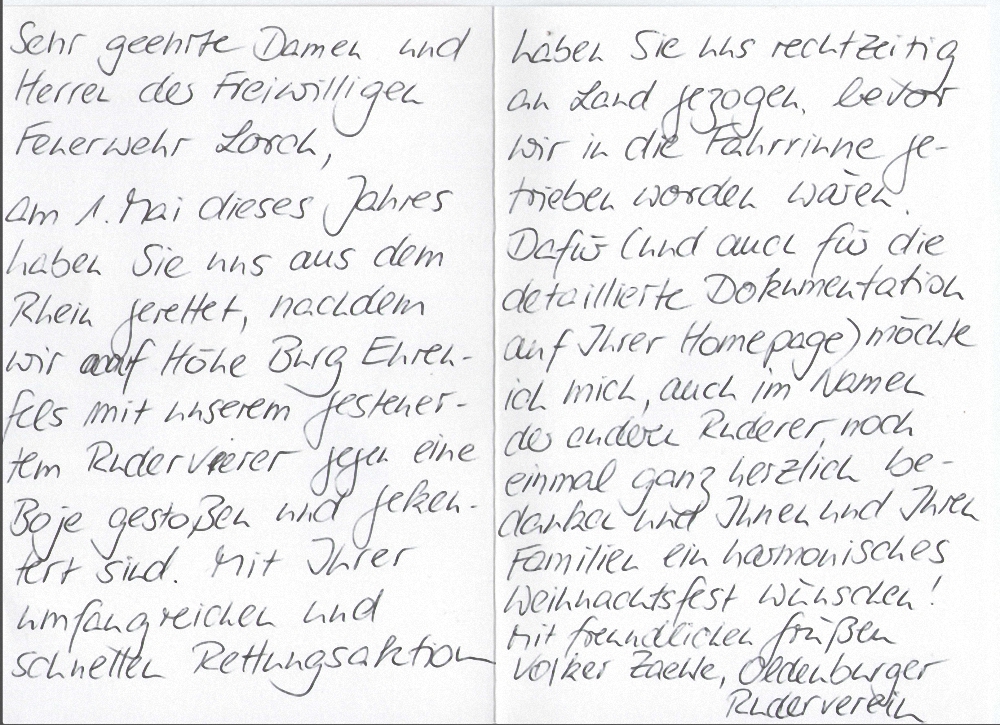 Sehr geehrte Damen und
Herren der Freiwilligen
Feuerwehr Lorch,
am 1. Mai dieses Jahres
haben Sie uns aus dem
Rhein gerettet, nachdem
wir auf Höhe Burg Ehren-
fels mit unserem gesteuer-
tem Rudervierer gegen eine
Boje gestoßen und geken-
tert sind. Mit Ihrer
umfangreichen und
schnellen Rettungsaktion
haben Sie uns rechtzeitig
an Land gezogen, bevor
wir in die Fahrrinne ge-
trieben worden wären.
Dafür (und auch für die
detaillierte Dokumentation
auf Ihrer Homepage) möchte
ich mich, auch im Namen
der anderen Ruderer, noch
einmal ganz herzlich be-
danken und Ihnen und Ihren
Familien ein harmonisches
Weihnachtsfest wünschen!
Mit freundlichen Grüßen
Volker, Oldenburger
Ruderverein